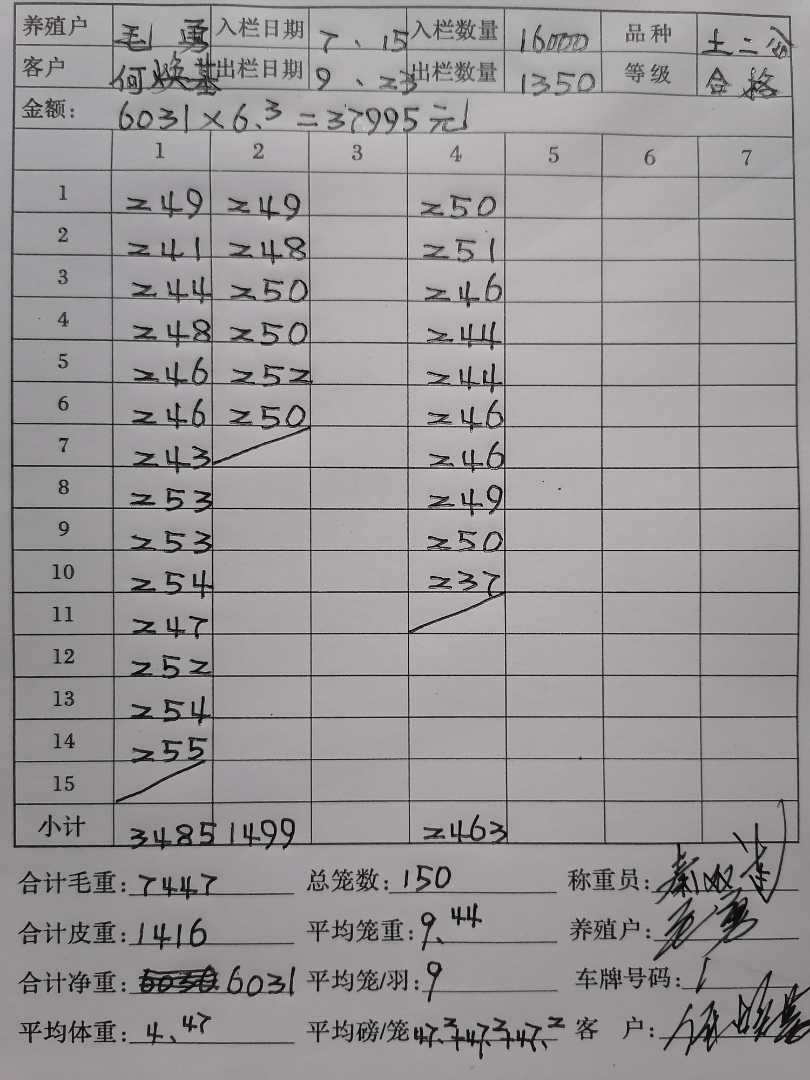 养殖户 毛勇 入栏日期 7、15 入栏数量 16000 品种 土二
客户 何焕基 出栏日期 9、23 出栏数量 1350 等级 合格
金额: 6031×6.3=37995元
1 2 3 4 5 6 7
1 249 249 250
2 241 248 251
3 244 250 246
4 248 250 244
5 246 252 244
6 246 250 246
7 243 246
8 253 249
9 253 250
10 254 237
11 247
12 252
13 254
14 255
15
小计 3485 1499 2463
合计毛重: 7447 总笼数: 150 称重员:
合计皮重: 1416 平均笼重: 9.44 养殖户: 毛勇
合计净重: 6031 平均笼/羽: 9 车牌号码:
平均体重: 4.47 平均磅/笼 47.2+47.2+47.2 客 户: 何焕基